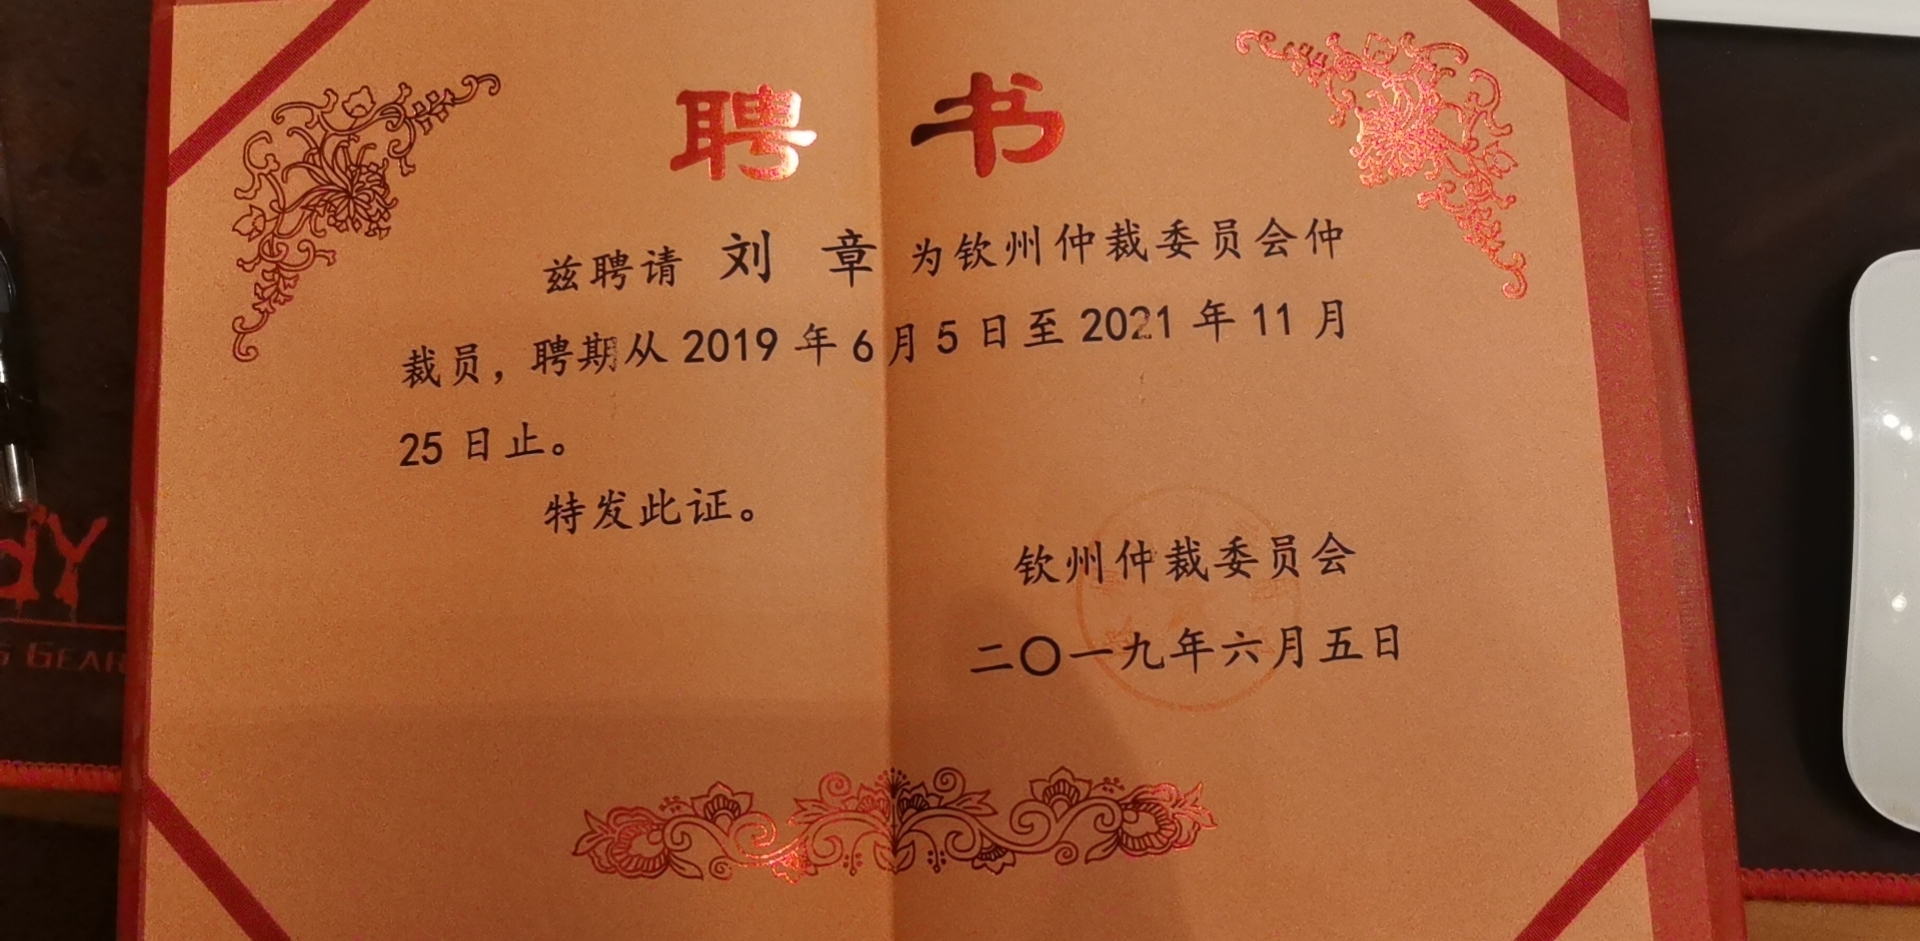 聘书
兹聘请 刘 章 为钦州仲裁委员会仲
裁员，聘期从 2019 年 6 月 5 日至 2021 年 11 月
25 日止。
特发此证。
钦州仲裁委员会
二〇一九年六月五日
GEAR